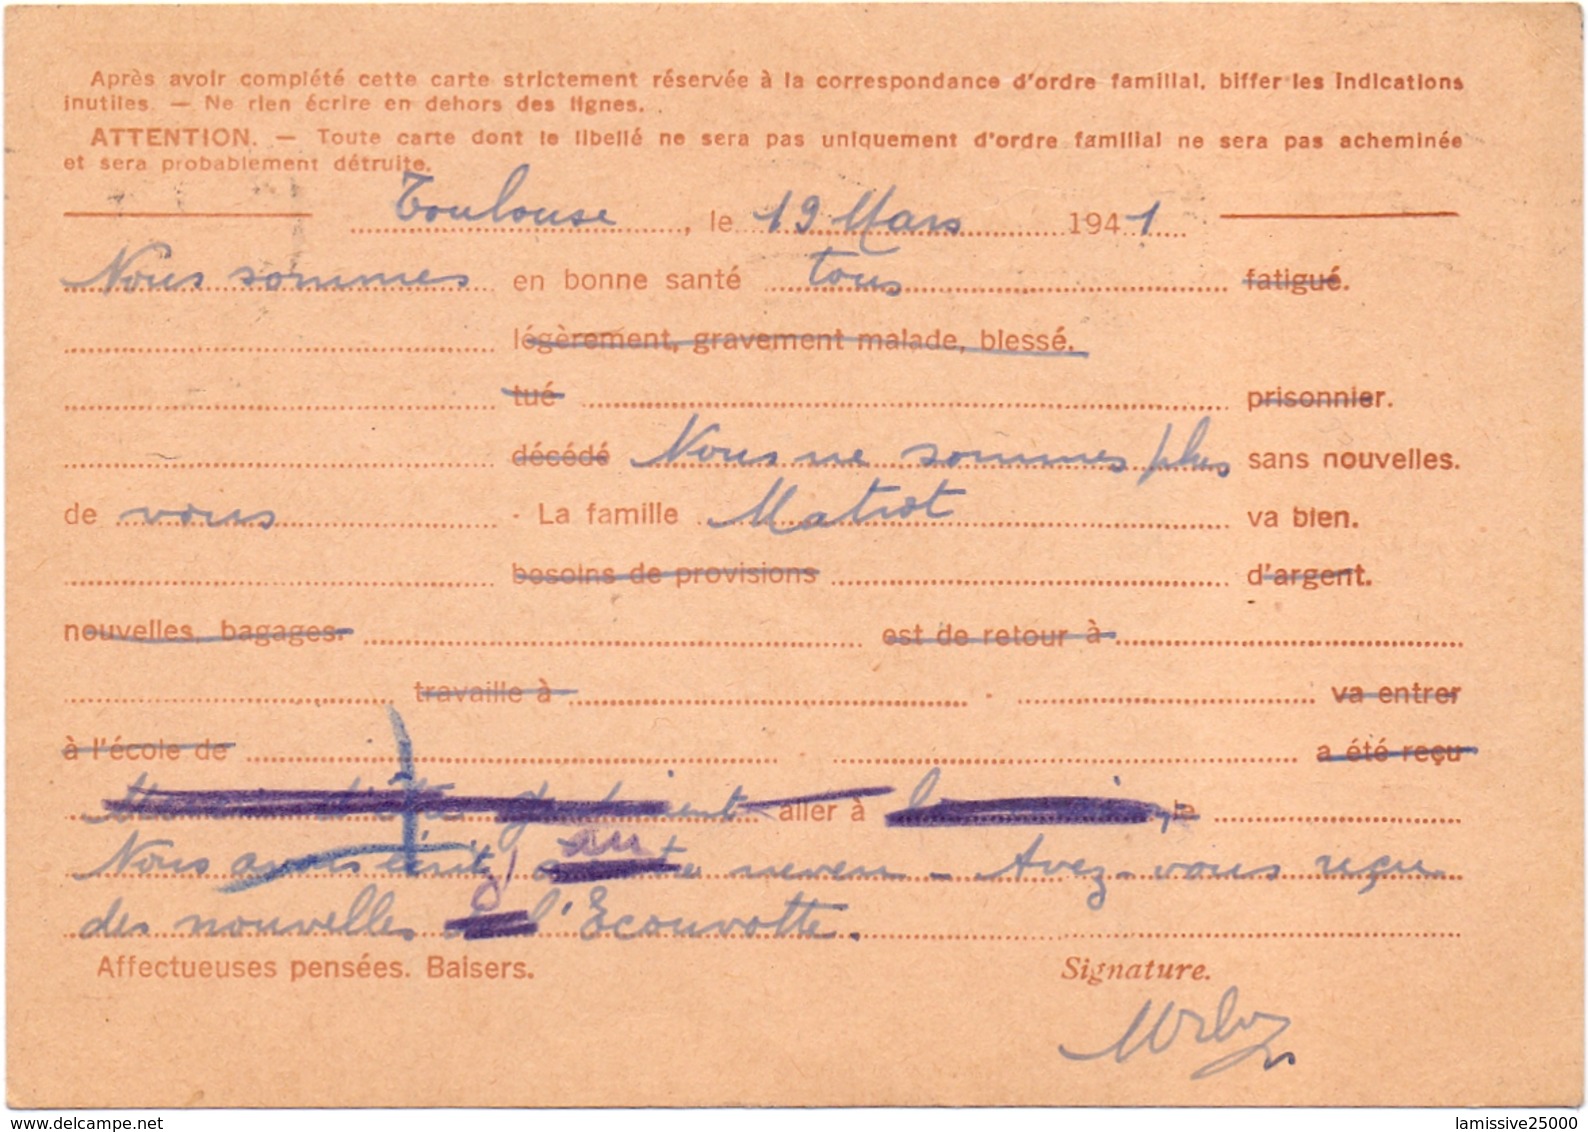 Après avoir complété cette carte strictement réservée à la correspondance d'ordre familial, biffer les indications
inutiles. — Ne rien écrire en dehors des lignes.
ATTENTION. — Toute carte dont le libellé ne sera pas uniquement d'ordre familial ne sera pas acheminée
et sera probablement détruite.
Toulouse, le 19 Mars 1941
Nous sommes en bonne santé tous fatigué.
légèrement, gravement malade, blessé.
tué prisonnier.
décédé Nous ne sommes plus sans nouvelles.
de vous. La famille Matrot va bien.
besoins de provisions d'argent.
nouvelles, bagages. est de retour à
travaille à va entrer
à l'école de a été reçu
aller à , le
Nous avons écrit au neveu - Avez-vous reçu
des nouvelles l'Ecouvotte.
Affectueuses pensées. Baisers. Signature.
delcampe.net lamissive25000